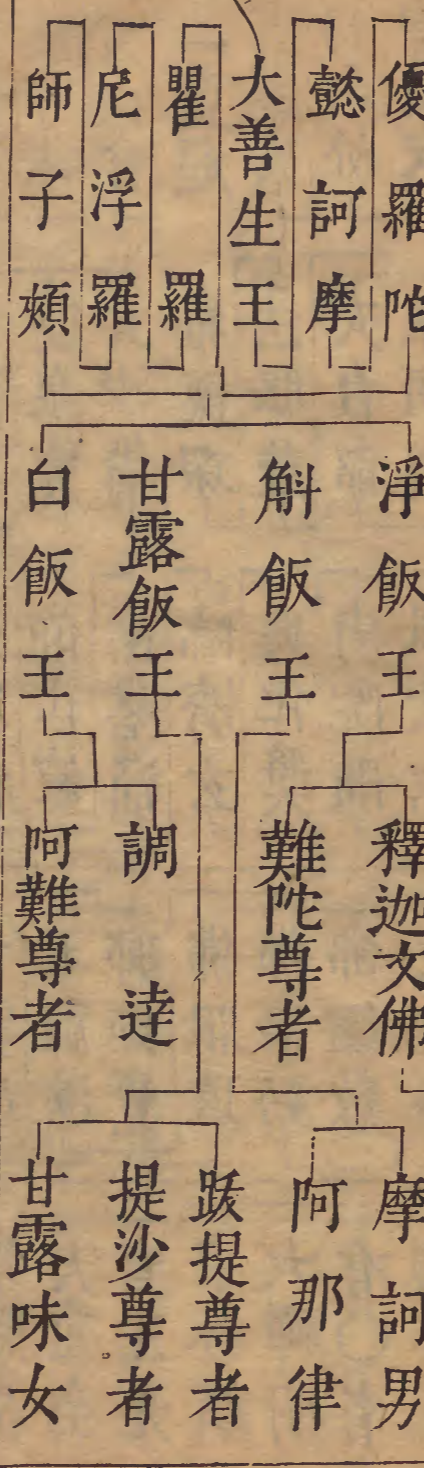 優羅陀
懿訶摩
大善生王
瞿羅
尼浮羅
師子頰
淨飯王
斛飯王
甘露飯王
白飯王
釋迦文佛
難陀尊者
調達
阿難尊者
摩訶男
阿那律
跋提尊者
提沙尊者
甘露味女